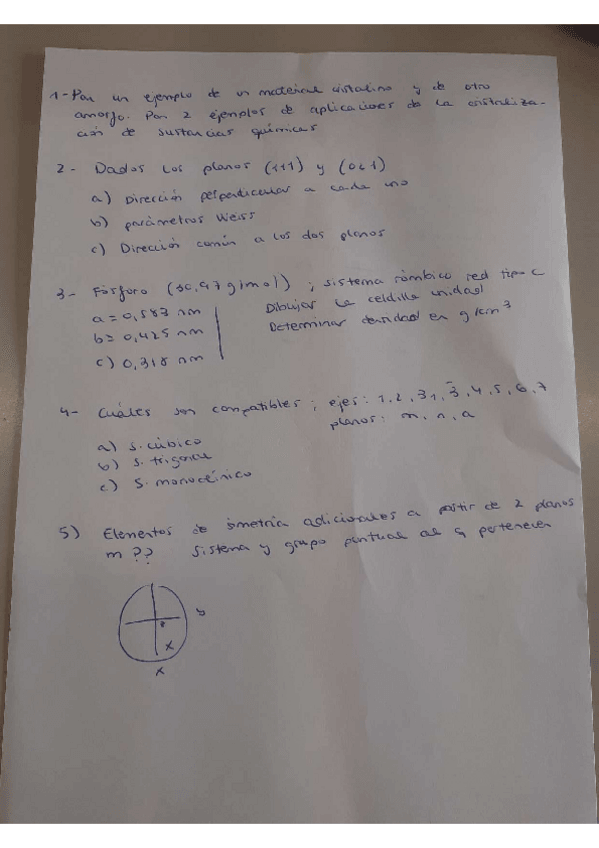 1- Pon un ejemplo de un material cristalino y de otro
amorfo. Pon 2 ejemplos de aplicaciones de la cristaliza-
ción de sustancias químicas
2- Dados los planos (111) y (001)
a) Dirección perpendicular a cada uno
b) parámetros Weiss
c) Dirección común a los dos planos
3- Fósforo (30,97 g/mol) ; sistema rómbico red tipo C
a = 0,583 nm Dibujar la celdilla unidad
b = 0,425 nm Determinar densidad en g/cm³
c) 0,318 nm
4- Cuáles son compatibles ; ejes: 1, 2, 31, 3̄, 4, 5, 6, 7
planos: m, n, a
a) S. cúbico
b) S. trigonal
c) S. monoclínico
5) Elementos de simetría adicionales a partir de 2 planos
m ?? Sistema y grupo puntual al q pertenecen
y
x
x